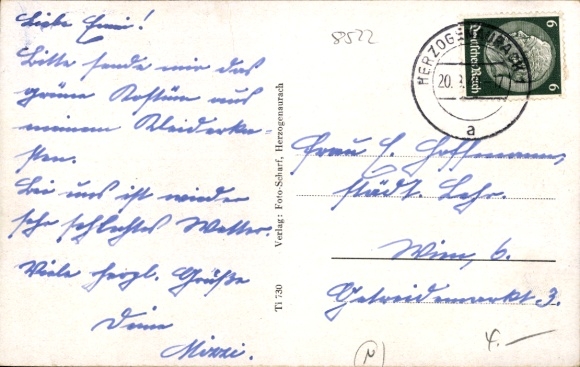 Liebe Emmi!
Bitte sende mir das
grüne Kostüm aus
meinem Kleiderka=
sten.
Bei uns ist wieder
sehr schlechtes Wetter.
Viele herzl. Grüße
Deine
Mizzi.
Verlag: Foto-Scharf, Herzogenaurach
Ti 730
8522
HERZOGENAURACH
20.
a
Deutsches Reich
6
6
Frau H. Hoffmann,
städt. Lehr.
Wien, 6.
Getreidemarkt 3.
4.—
N